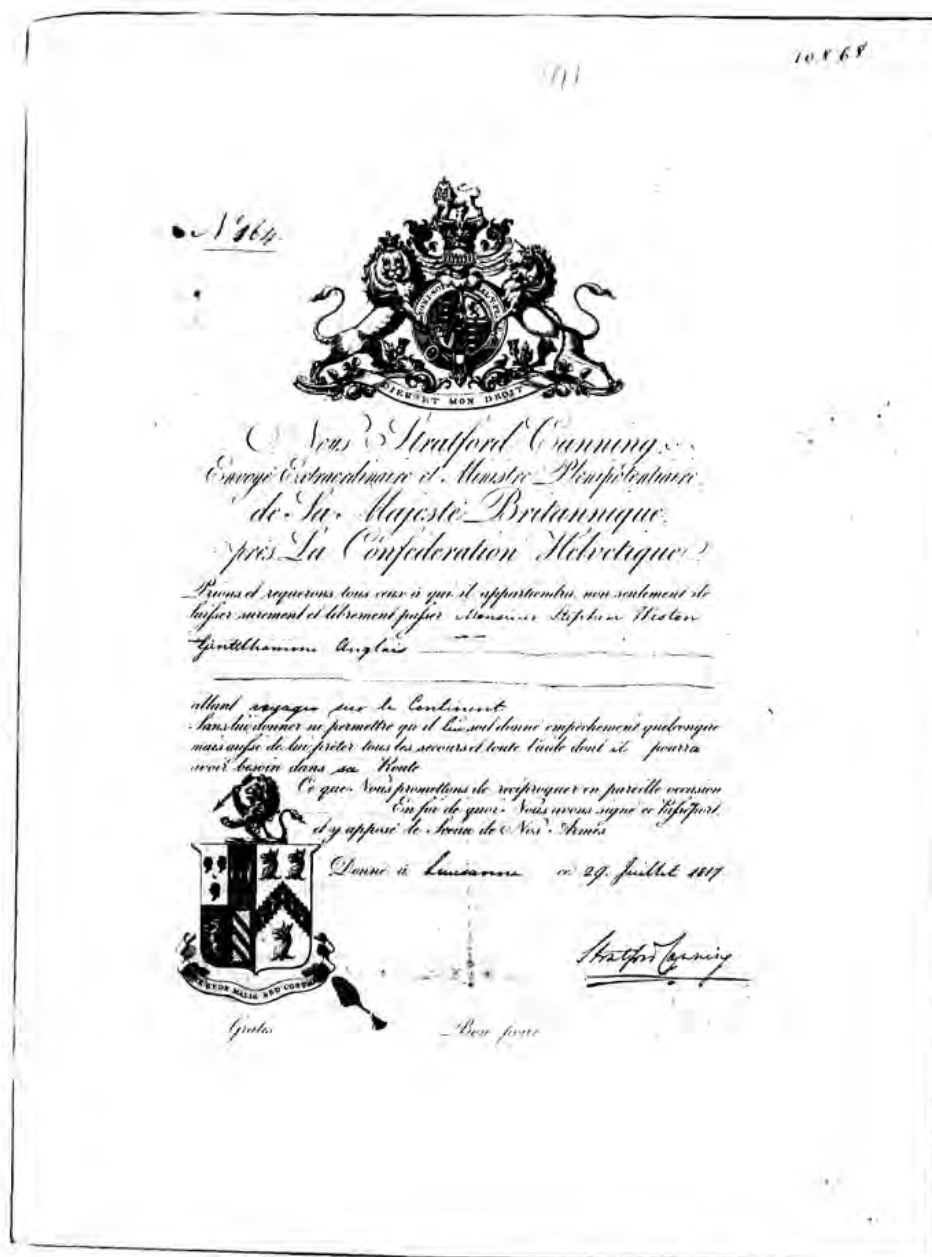 10868
Nº 164.
DIEU ET MON DROIT
Nous Stratford Canning
Envoyé Extraordinaire et Ministre Plenipotentiaire
de Sa Majesté Britannique
près La Confédération Helvetique
Prions et requerons tous ceux à qui il appartiendra, non seulement de
laisser surement et librement passer Monsieur Stephen Weston
Gentilhomme Anglais
allant voyager sur le Continent
Sans lui donner ne permettre qu'il lui soit donné empêchement quelconque
mais aussi de lui prêter tous les secours et toute l'aide dont il pourra
avoir besoin dans sa Route
Ce que Nous promettons de réciproquer en pareille occasion
En foi de quoi Nous avons signé ce Passeport
et y apposé le Sceau de Nos Armes
Donné à Lausanne ce 29. Juillet 1817
Stratford Canning
NE CEDE MALIS SED CONTRA
Gratis
Bon pour